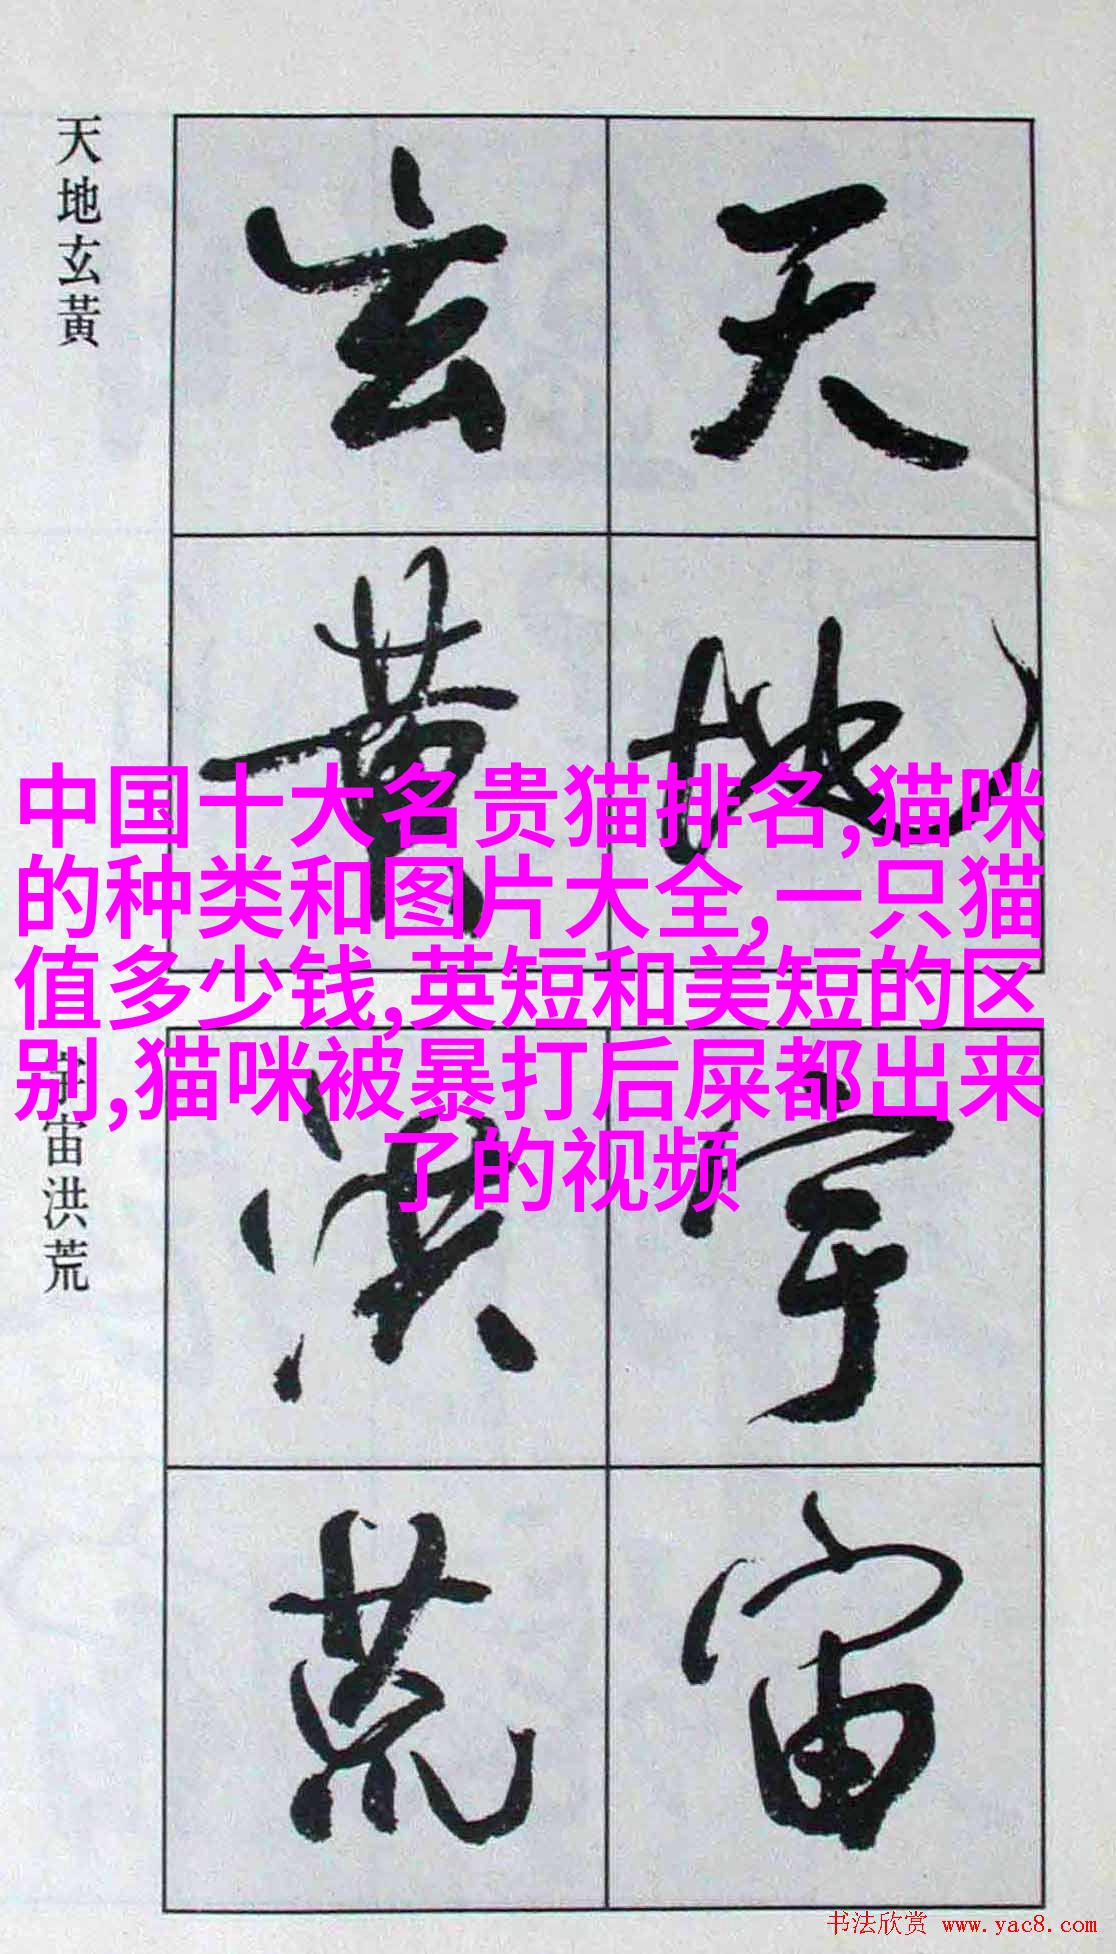 天地玄黃
天
地
玄
黄
中国十大名贵猫排名,猫咪
的种类和图片大全,一只猫
值多少钱,英短和美短的区
别,猫咪被暴打后屎都出来
了的视频
宇宙洪荒
宇
宙
洪
荒
书法欣赏 www.yac8.com